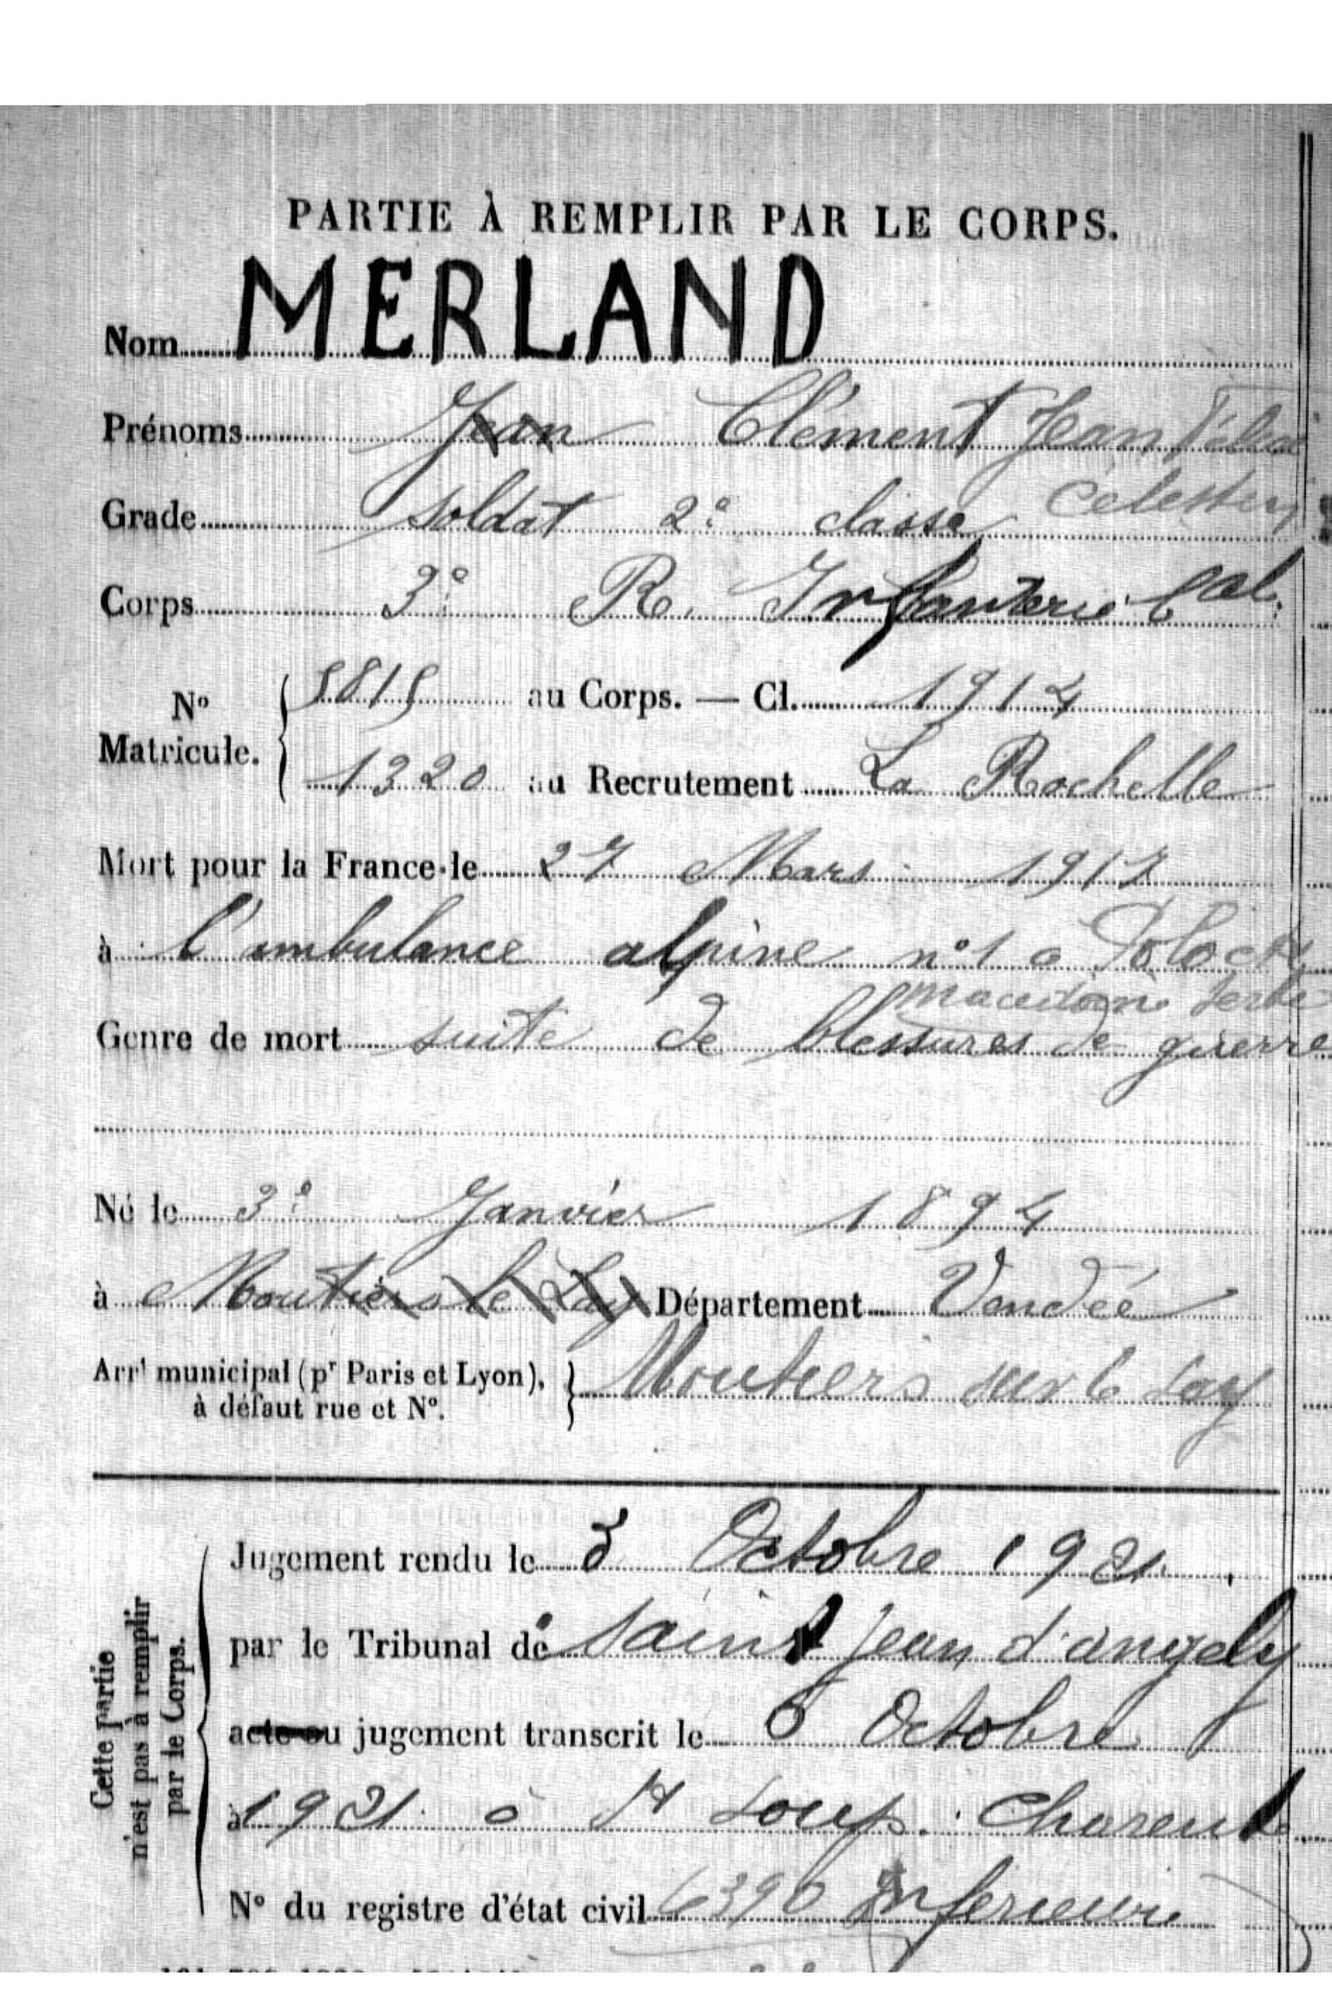 PARTIE À REMPLIR PAR LE CORPS.
Nom MERLAND
Prénoms Jean Clément Jean Félix
Célestin
Grade soldat 2e classe
Corps 3e R. Infanterie Col.
No Matricule. 5815 au Corps. — Cl. 1914
1320 au Recrutement La Rochelle
Mort pour la France le 27 Mars 1917
à l'ambulance alpine n°1 a
macedoine serbe
Genre de mort suite de blessures de guerre
Né le 3e Janvier 1894
à Moutiers le Lay Département Vendée
Arrt municipal (pr Paris et Lyon),
à défaut rue et N°.
Moutiers sur le Lay
Cette partie
n'est pas à remplir
par le Corps.
Jugement rendu le 5 Octobre 1921
par le Tribunal de Saint Jean d'angely
acte ou jugement transcrit le 6 Octobre
à 1921 à St Loup. Charente
N° du registre d'état civil 6390 Inferieure